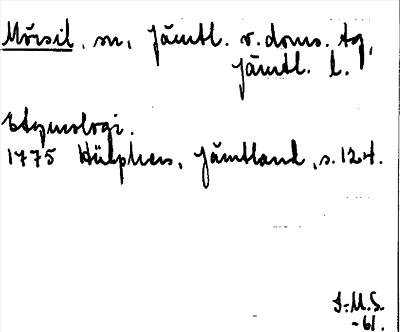 Mörsil, sn, Jämtl. v. doms. tg,
Jämtl. l.
Etymologi.
1775 Hülphers, Jämtland, s. 124.
I.M.S.
-61.